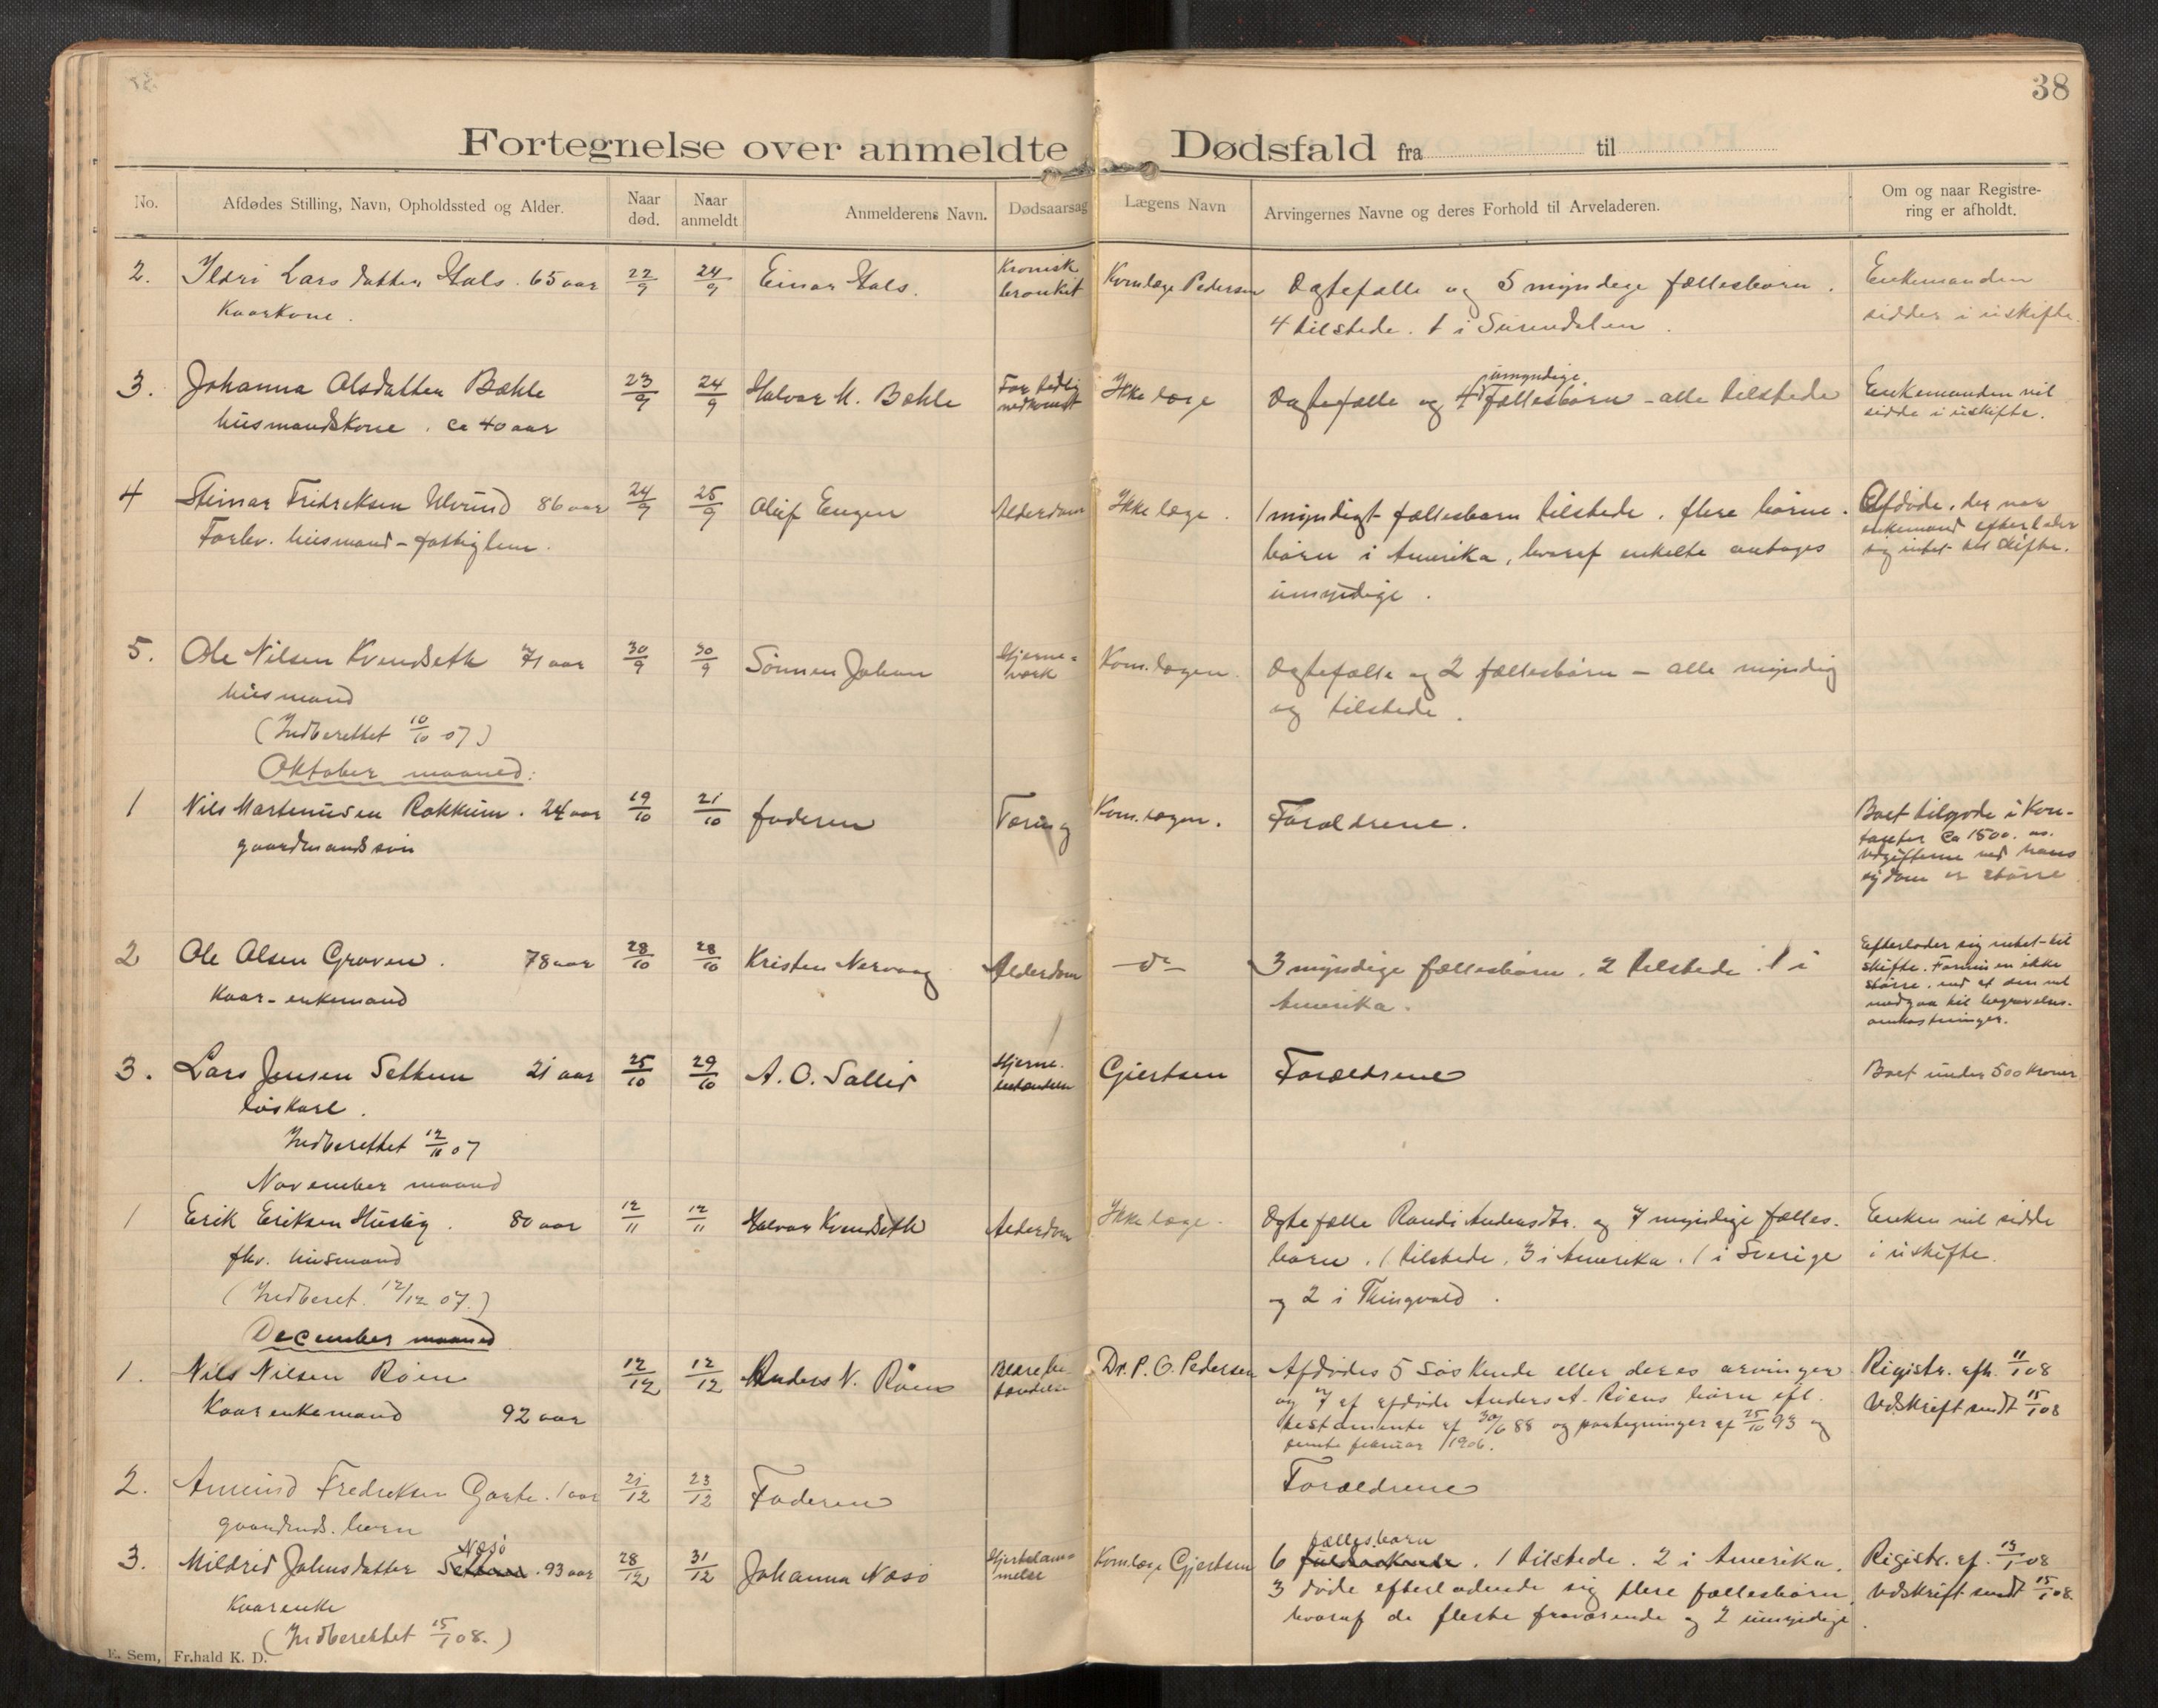 38
Fortegnelse over anmeldte Dødsfald fra til
No. Afdødes Stilling, Navn, Opholdssted og Alder. Naar død. Naar anmeldt Anmelderens Navn. Dødsaarsag Lægens Navn Arvingernes Navne og deres Forhold til Arveladeren. Om og naar Registrering er afholdt.
2. Ildri Larsdatter Hals. 65 aar 22/9 24/9 Einar Hals. Kronisk bronkit Komlæge Pedersen Ægtefælle og 5 myndige fællesbørn. Enkemanden
Kaarkone. 4 tilstede. 1 i Surendalen. sidder i uskifte.
3. Johanna Olsdatter Bæhle 23/9 24/9 Halvor M. Bæhle For tidlig nedkomst Ikke læge Ægtefælle og 4 umyndige fællesbørn - alle tilstede Enkemanden vil
husmandskone. ca 40 aar sidde i uskifte.
4 Steinar Fredriksen Ulvund 86 aar 24/9 25/9 Oluf Engen Alderdom Ikke læge. 1 myndigt fællesbarn tilstede. flere børne- Afdøde, der var
Forhv. husmand - fattiglem. børn i Amerika, hvoraf enkelte antages enkemand efterlader
umyndige. sig intet til skifte.
5. Ole Nilsen Kvendseth 71 aar 30/9 30/9 Sønnen Johan Hjerne- Kom.lægen. Ægtefælle og 2 fællesbørn - alle myndig
husmand og tilstede.
(Indberettet 10/10 07)
Oktober maaned:
1 Nils Martinusen Rokkum. 24 aar 19/10 21/10 faderen Tæring Kom.lægen. Forældrene. Boet tilgode i Kon-
gaardmandssøn tanter Ca 1500. 
Udgifterne ved hans
sygdom er større
2 Ole Olsen Graven. 78 aar 28/10 28/10 Kristen Nervaag Alderdom -do- 3 myndige fællesbørn. 2 tilstede. 1 i Efterlader sig intet til
Kaar-enkemand Amerika. skifte. Formuen ikke
større, end at den vil
medgaa til begravelses-
omkostninger.
3. Lars Jensen Settem 21 aar 25/10 29/10 A. O. Sallid Hjerne- Gjertsen Forældrene Boet under 500 Kroner
løskarl.
Indberettet 12/11 07
November maaned
1 Erik Eriksen Husby. 80 aar 12/11 12/11 Halvor Kvendseth Alderdom Ikke læge. Ægtefælle Randi Andersdtr. og 7 myndige fælles- Enken vil sidde
fhv. husmand børn. 1 tilstede. 3 i Amerika. 1 i Sverige i uskifte.
(Indberet. 12/12 07.) og 2 i Thingvold.
December maaned
1. Nils Nilsen Røen 12/12 12/12 Anders N. Røen Blærebe- tændelse Dr. P. O. Pedersen Afdødes 5 søskende eller deres arvinger Registr. afh. 11/1 08
Kaarenkemand 92 aar og 7 af afdøde Anders A. Røens børn efl. Udskrift sendt 15/1 08
testamente af 30/6 88 og paategninger af 25/10 93 og
februar 1906.
2. Amund Fredriksen Gaste. 1 aar 21/12 23/12 Faderen Forældrene
gaardmds. barn
3. Mildrid Johnsdatter Settem Næsø. 93 aar 28/12 31/12 Johanna Næsø Hjertelam- melse Komlæge Gjertsen 6 fællesbørn. 1 tilstede. 2 i Amerika. Registr. af. 13/1 08
Kaarenke 3 døde efterladende sig flere fællesbørn, Udskrift sendt 15/1 08.
(Indberettet 15/1 08.) hvoraf de fleste fraværende og 2 umyndige.
E. Sem, Fr.hald K. D.